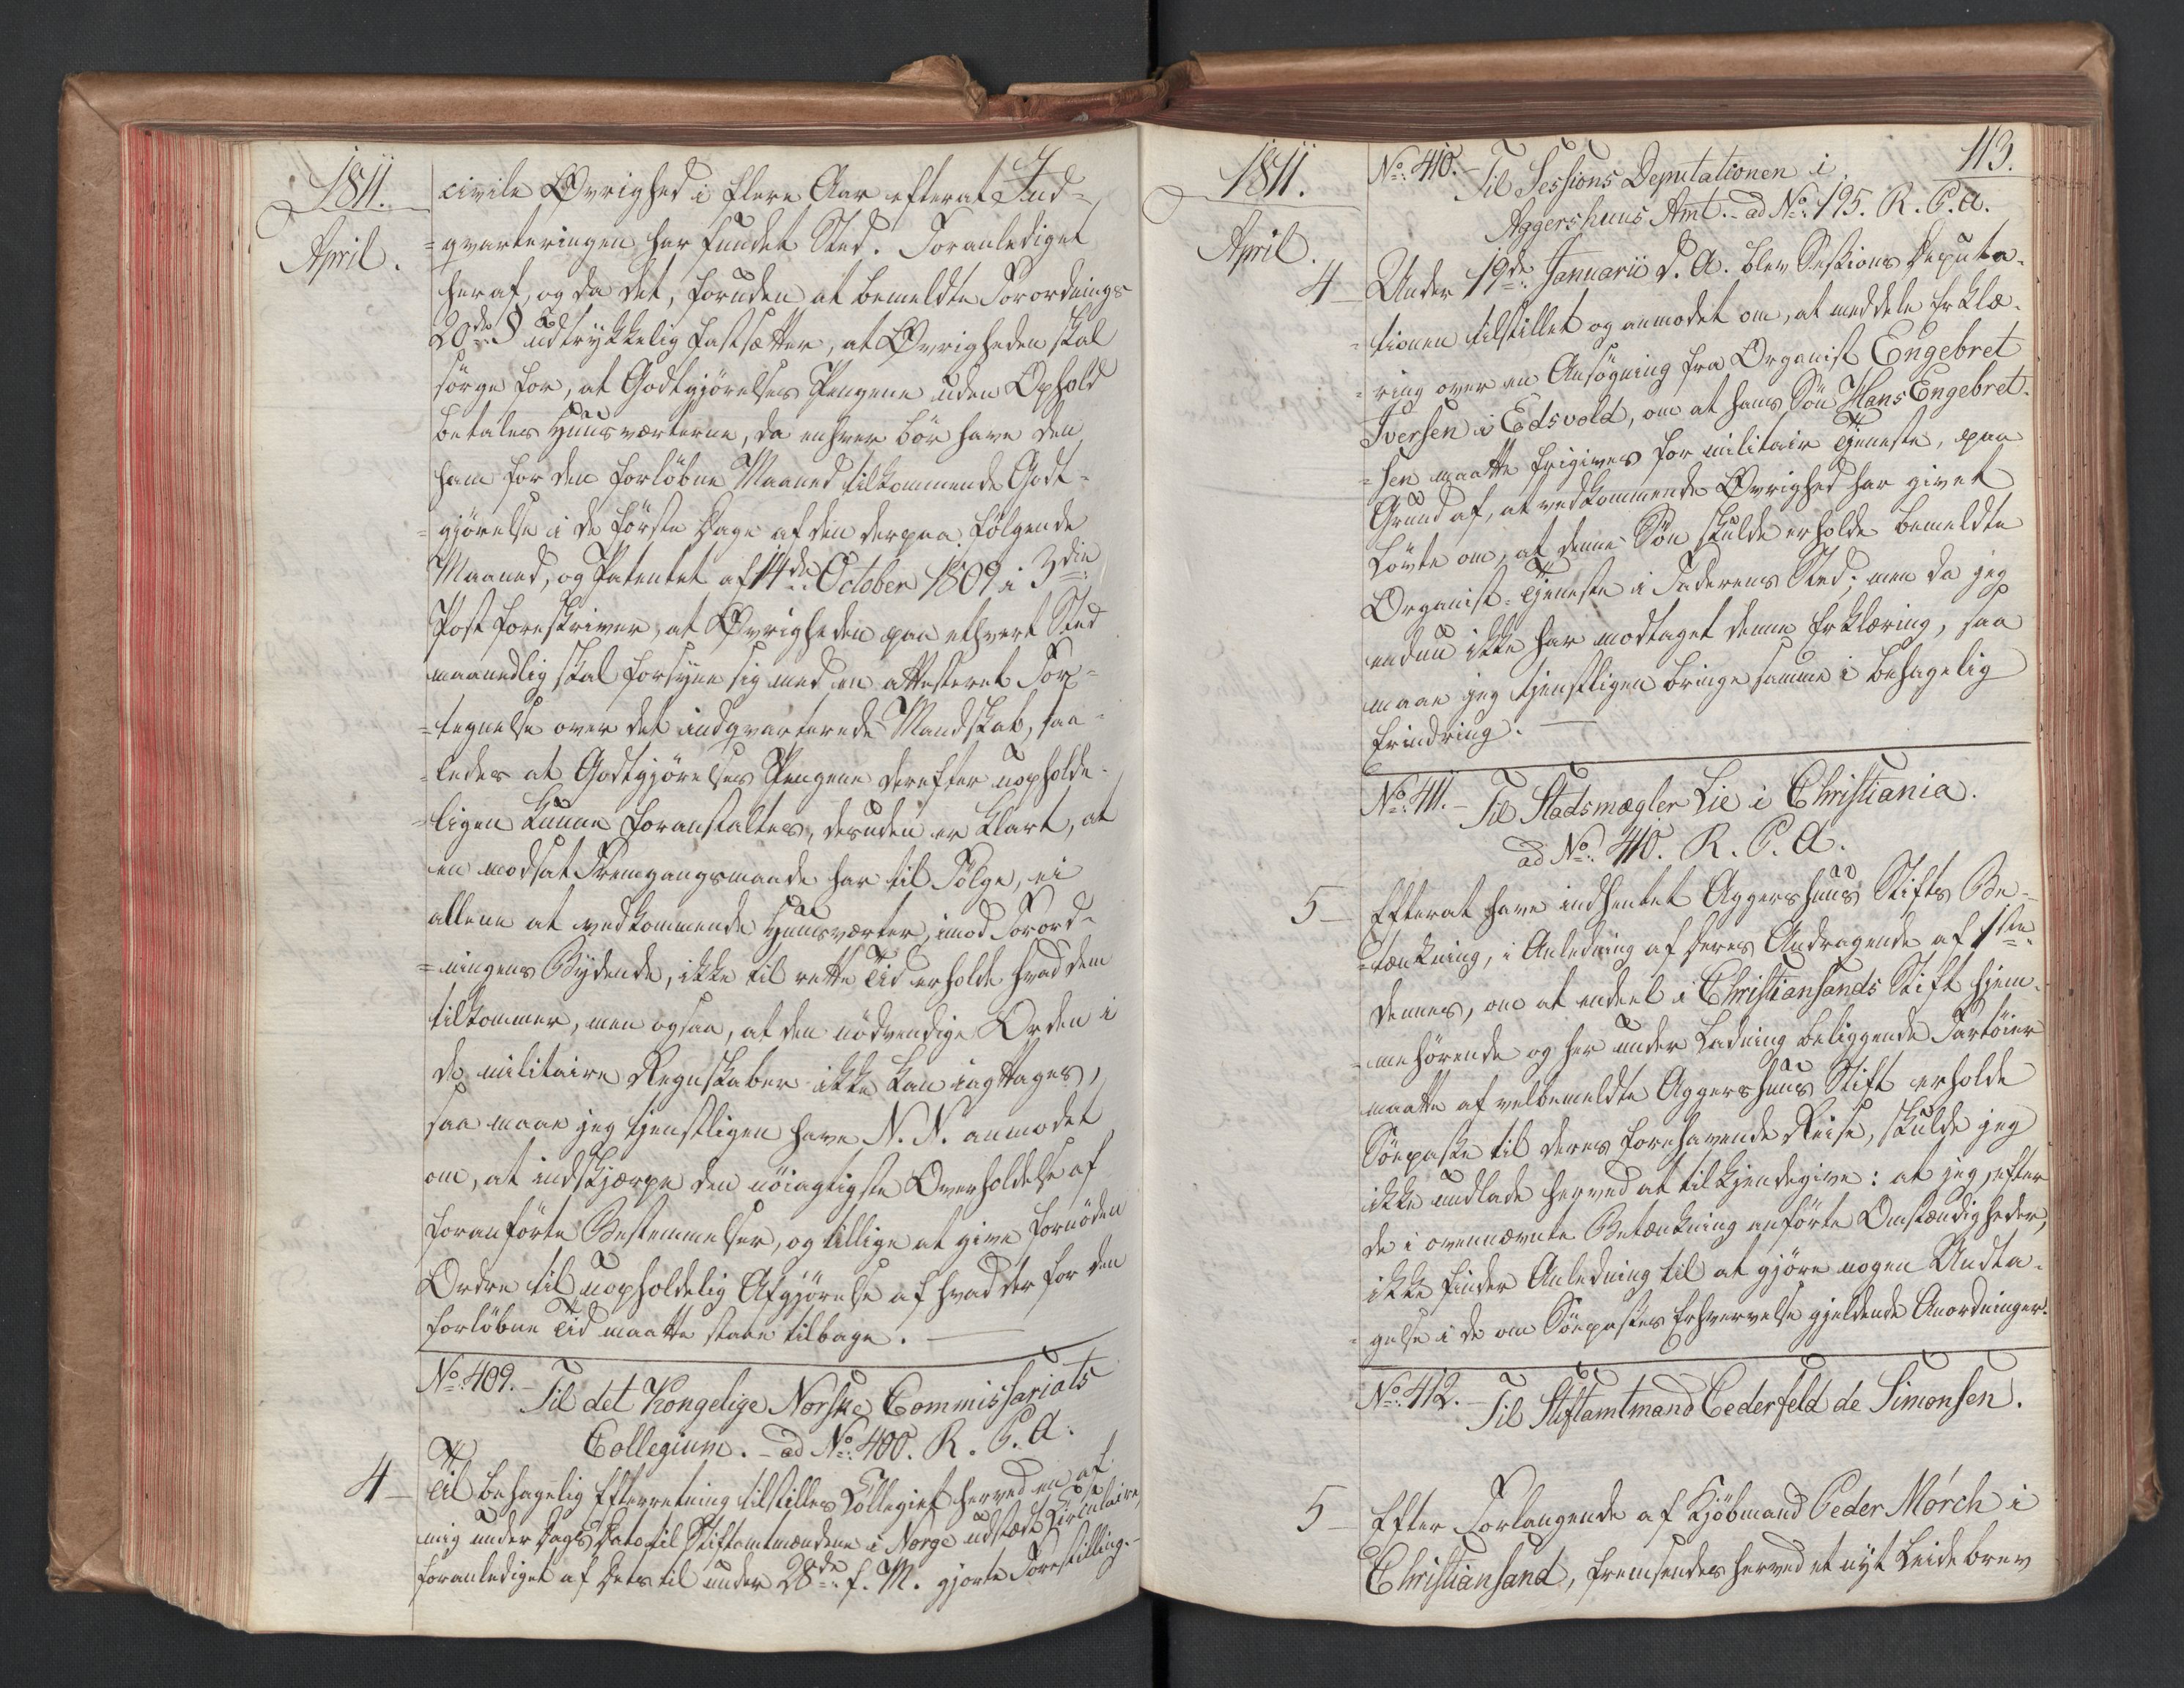 1811.
April.
civile Øvrighed i flere Aar efterat Ind-
=qvarteringen har fundet Sted. Foranlediget
heraf, og da det, foruden at bemeldte Forordnings
20de § udtrykkelig fastsætter, at Øvrigheden skal
sørge for, at Godtgjørelses Pengene uden Ophold
betales Huusværterne, da enhver bør have den
ham for den forløbne Maaned tilkommende Godt-
=gjørelse i de første Dage af den derpaa følgende
Maaned, og Patentet af 14de October 1809 i 3die
Post foreskriver, at Øvrigheden paa ethvert Sted
maanedlig skal forsyne sig med en attesteret For-
=tegnelse over det indqvarterede Mandskab, saa-
=ledes at Godtgjørelses Pengene derefter uopholde-
=ligen kunne foranstaltes, desuden er klart, at
en modsat Fremgangsmaade har til Følge, ei
allene at vedkommende Huusværter, imod Forord-
=ningens Bydende, ikke til rette Tid erholde hvad dem
tilkommer, men ogsaa, at den nødvendige Orden i
de militaire Regnskaber ikke kan iagttages,
saa maae jeg tjenstligen have N. N. anmodet
om, at indskjærpe den nøiagtigste Overholdelse af
foranførte Bestemmelser, og tillige at give fornøden
Ordre til uopholdelig Afgjørelse af hvad der for den
forløbne Tid maatte staae tilbage.
No. 409. Til det Kongelige Norske Commissariats
Collegium. - ad No. 400. R. P. A.
4 - Til behagelig Efterretning tilstilles Collegiet herved en af
mig under Dags Dato til Stiftamtmændene i Norge udstædt Circulaire,
foranlediget af Dets til under 28de f. M. gjorte Forestilling. -
1811.
April.
113.
No. 410. - Til Sessions Deputationen i
Aggershuus Amt. - ad No. 195. R. P. A.
4 - Under 19de Januarii d. A. blev Sessions Deputa-
=tionen tilstillet og anmodet om, at meddele Erklæ-
=ring over en Ansøgning fra Organist Engebret
Iversen i Edsvold, om at hans Søn Hans Engebret-
=sen maatte frigives for militair Tjeneste, paa
Grund af, at vedkommende Øvrighed har givet
Løvte om, at denne Søn skulde erholde bemeldte
Organist-Tjeneste i Faderens Sted; men da jeg
endnu ikke har modtaget denne Erklæring, saa
maae jeg tjenstligen bringe samme i behagelig
Erindring.
No. 411. - Til Stadsmægler Lie i Christiania.
ad No. 410. R. P. A.
5 - Efterat have indhentet Aggershuus Stifts Be-
=tænkning, i Anledning af Deres Andragende af 1ste
dennes, om at endeel i Christiansands Stift hjem-
=mehørende og her under Ladning beliggende Fartøier
maatte af velbemeldte Aggershuus Stift erholde
Søepasse til deres forehavende Reise, skulde jeg
ikke undlade herved at tilkjendegive: at jeg, efter
de i ovennævnte Betænkning anførte Omstændigheder,
ikke finder Anledning til at gjøre nogen Undta-
=gelse i de om Søepasses Erhvervelse gjeldende Anordninger.
No. 412. - Til Stiftamtmand Cederfeld de Simonsen.
5 - Efter Forlangende af Kjøbmand Peder Mørch i
Christiansand, fremsendes herved et nyt Leidebrev